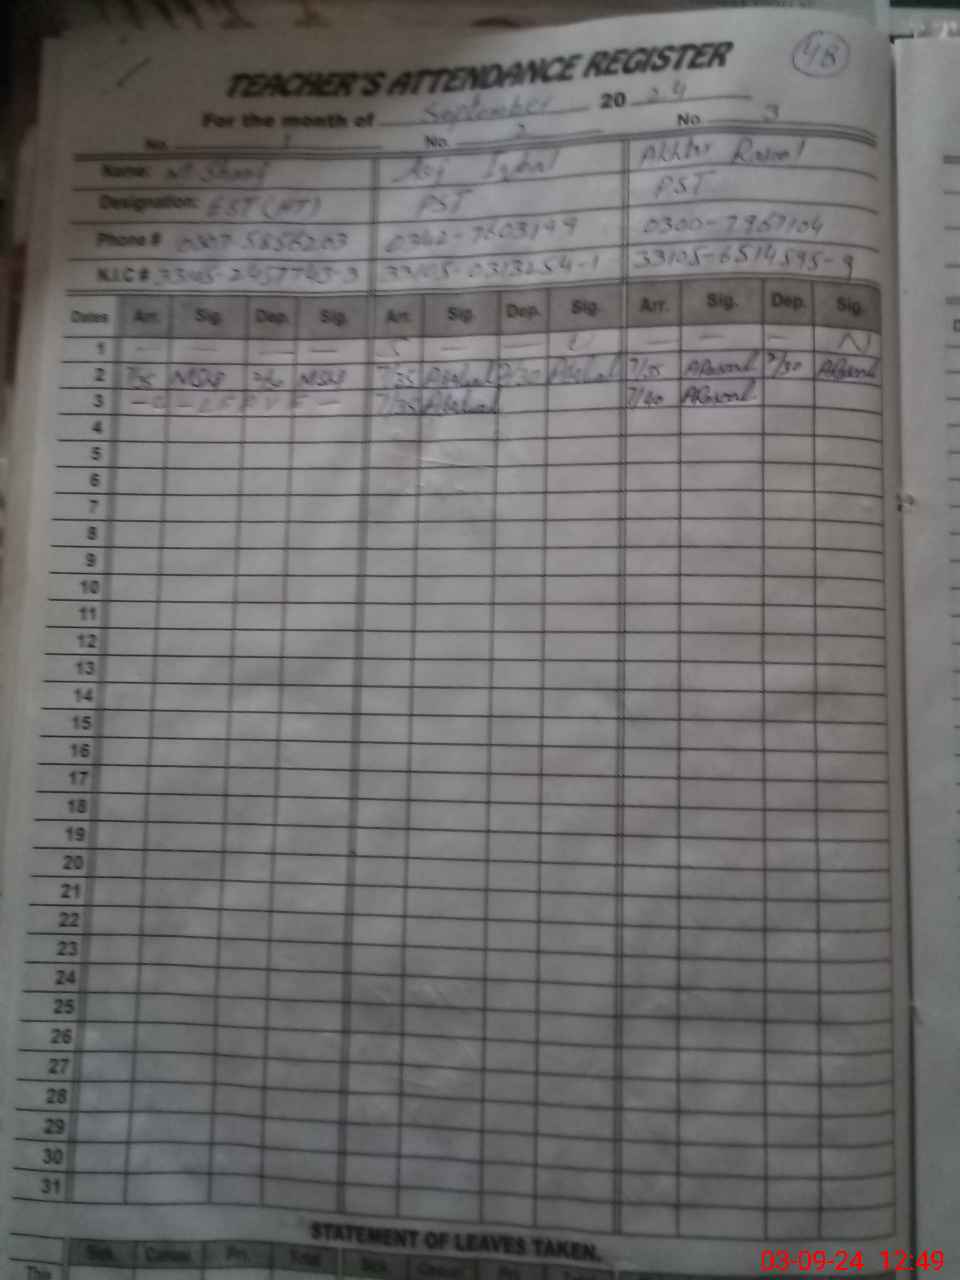 48
TEACHER'S ATTENDANCE REGISTER
For the month of September 20 24
No. 1 No. 2 No. 3
Name: Iqbal Akhtar Rasool
Designation: EST (HT) PST PST
Phone # 0307-5856203 0342-7603199 0300-7967104
N.I.C # 33105-2457743-3 33105-0313254-1 33105-6514595-9
Dates Arr. Sig. Dep. Sig. Arr. Sig. Dep. Sig. Arr. Sig. Dep. Sig.
1 — — — — S — — U — — — N
2 7/35 7/35 2/30 7/35 ARasool 2/30 ARasool
3 LEAVE 7/35 7/40 ARasool
4
5
6
7
8
9
10
11
12
13
14
15
16
17
18
19
20
21
22
23
24
25
26
27
28
29
30
31
STATEMENT OF LEAVES TAKEN.
Sick. Casual Pri. Total
This
03-09-24 12:49